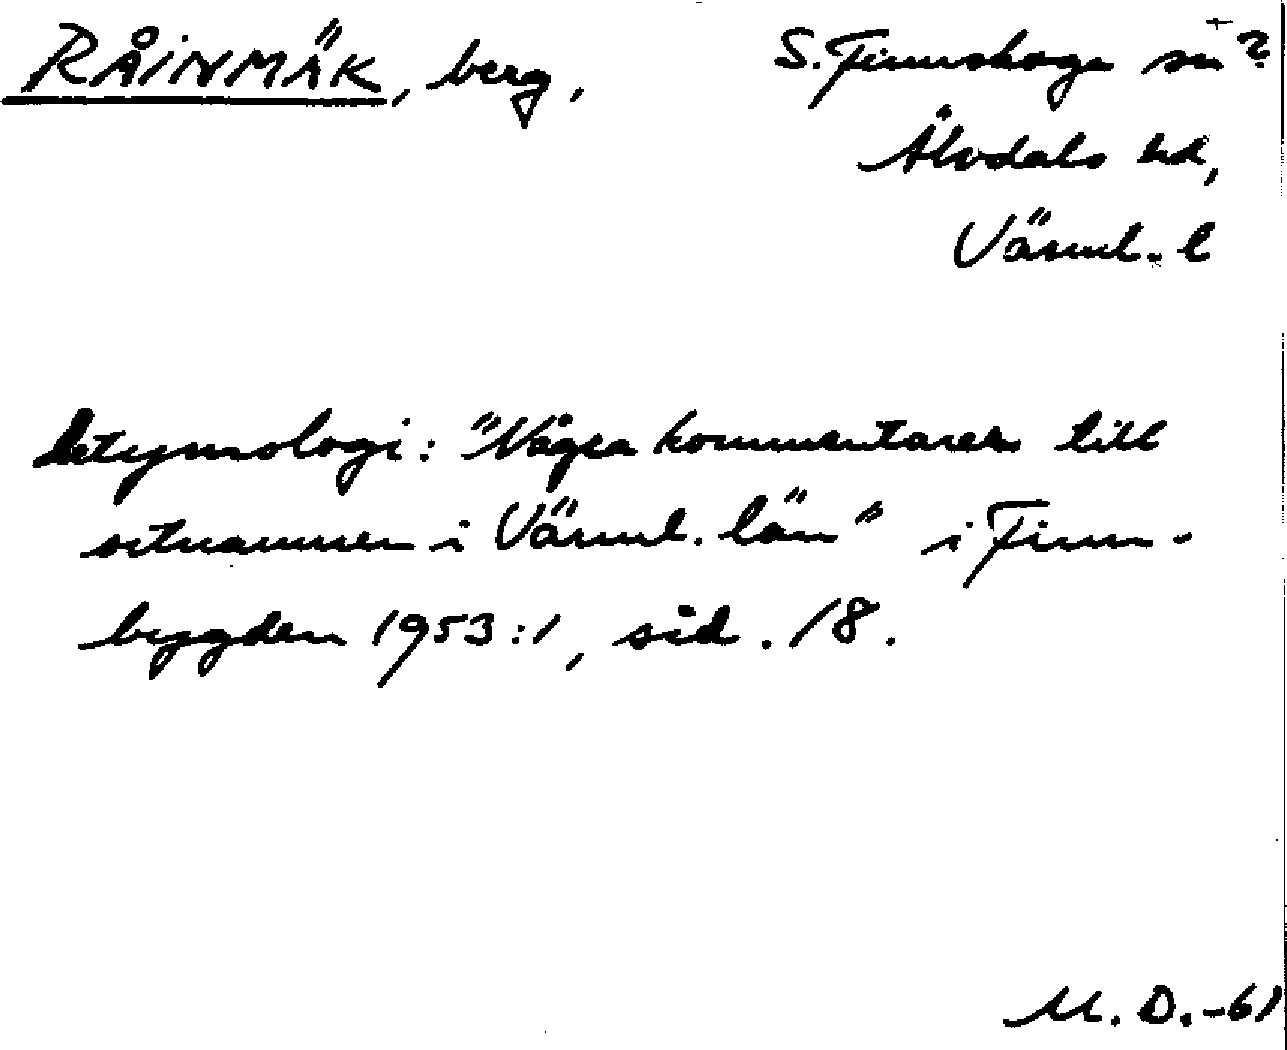 RÅINMÄK, berg, S. Finnskoga sn?
Älvdals hd,
Värml. l
etymologi: "Några kommentarer till
ortnamnen i Värml. län" i Finn-
bygden 1953:1, sid. 18.
M. D.-61